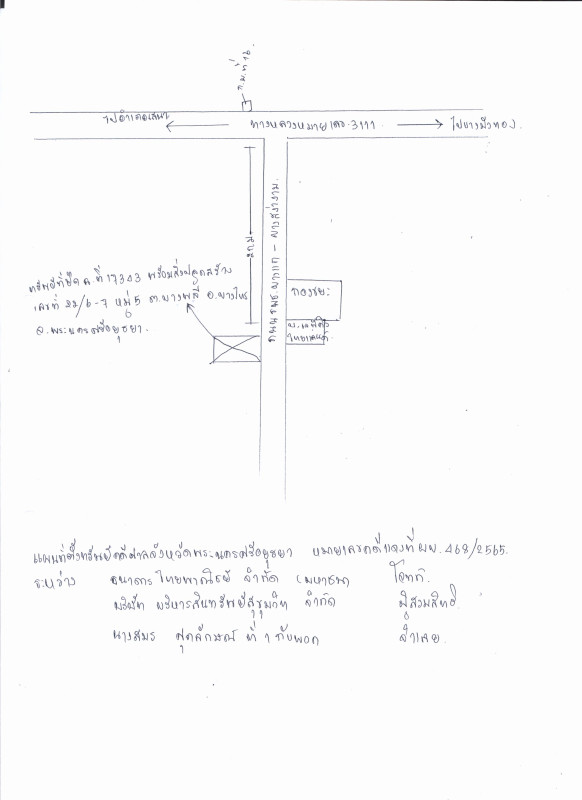 ก.ม.ที่ 16.
ไปอำเภอเสนา
ทางหลวงหมายเลข.3111
ไปบางบัวทอง.
2 กม.
ถนน รพช. บางแก - บางสง่างาม.
ทรัพย์ที่ยึด ฉ.ที่ 17343 พร้อมสิ่งปลูกสร้าง
เลขที่ 22/6-7 หมู่ 5 ต.บางพลี อ.บางไทร
จ.พระนครศรีอยุธยา.
กองขยะ
ไทยแลนด์
แผนที่ตั้งทรัพย์คดีศาลจังหวัดพระนครศรีอยุธยา หมายเลขคดีแดงที่ ผบ. 468/2565.
ระหว่าง ธนาคารไทยพาณิชย์ จำกัด (มหาชน) โจทก์.
บริษัท บริหารสินทรัพย์สุขุมวิท จำกัด ผู้สวมสิทธิ์.
นางสมร ศุภลักษณ์ ที่ 1 กับพวก จำเลย.